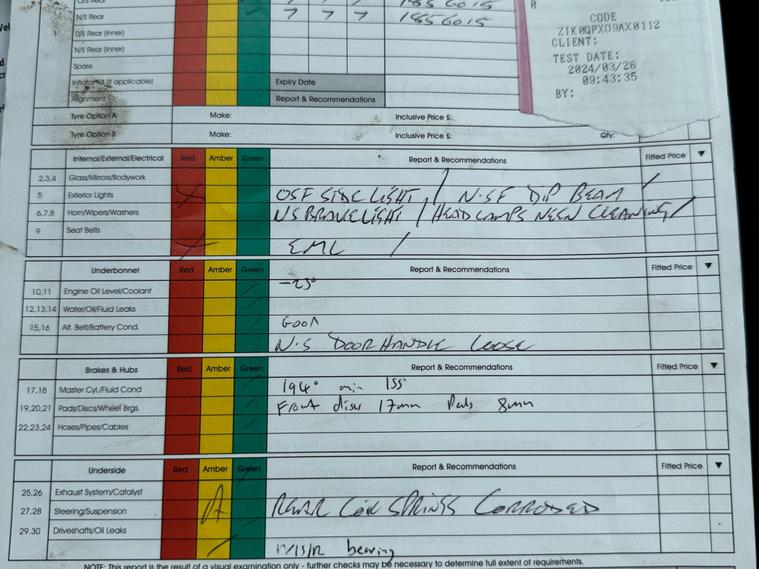 N/S Rear 7 7 7 1856015
O/S Rear (Inner)
N/S Rear (Inner)
Spare
(if applicable) Expiry Date
Alignment Report & Recommendations
Tyre Option A Make: Inclusive Price £:
Tyre Option B Make: Inclusive Price £: Qty:
0
CODE
ZIK0QPX09AX0112
CLIENT:
TEST DATE:
2024/03/26
09:43:35
BY:
Internal/External/Electrical Red Amber Green Report & Recommendations Fitted Price ▼
2,3,4 Glass/Mirrors/Bodywork
5 Exterior Lights X OSF SIDE LIGHT / N.SF DIP BEAM /
6,7,8 Horn/Wipers/Washers NS BRAKE LIGHT / HEADLAMPS NEED CLEANING /
9 Seat Belts
X EML /
Underbonnet Red Amber Green Report & Recommendations Fitted Price ▼
10,11 Engine Oil Level/Coolant -25°
12,13,14 Water/Oil/Fluid Leaks
15,16 Alt. Belt/Battery Cond. GOOD
N.S DOOR HANDLE LOOSE
Brakes & Hubs Red Amber Green Report & Recommendations Fitted Price ▼
17,18 Master Cyl./Fluid Cond 194° min 155°
19,20,21 Pads/Discs/Wheel Brgs. Front discs 17mm Pads 8mm
22,23,24 Hoses/Pipes/Cables
Underside Red Amber Green Report & Recommendations Fitted Price ▼
25,26 Exhaust System/Catalyst
27,28 Steering/Suspension A REAR COIL SPRINGS CORRODED
29.30 Driveshafts/Oil Leaks
bearing
NOTE: This report is the result of a visual examination only - further checks may be necessary to determine full extent of requirements.